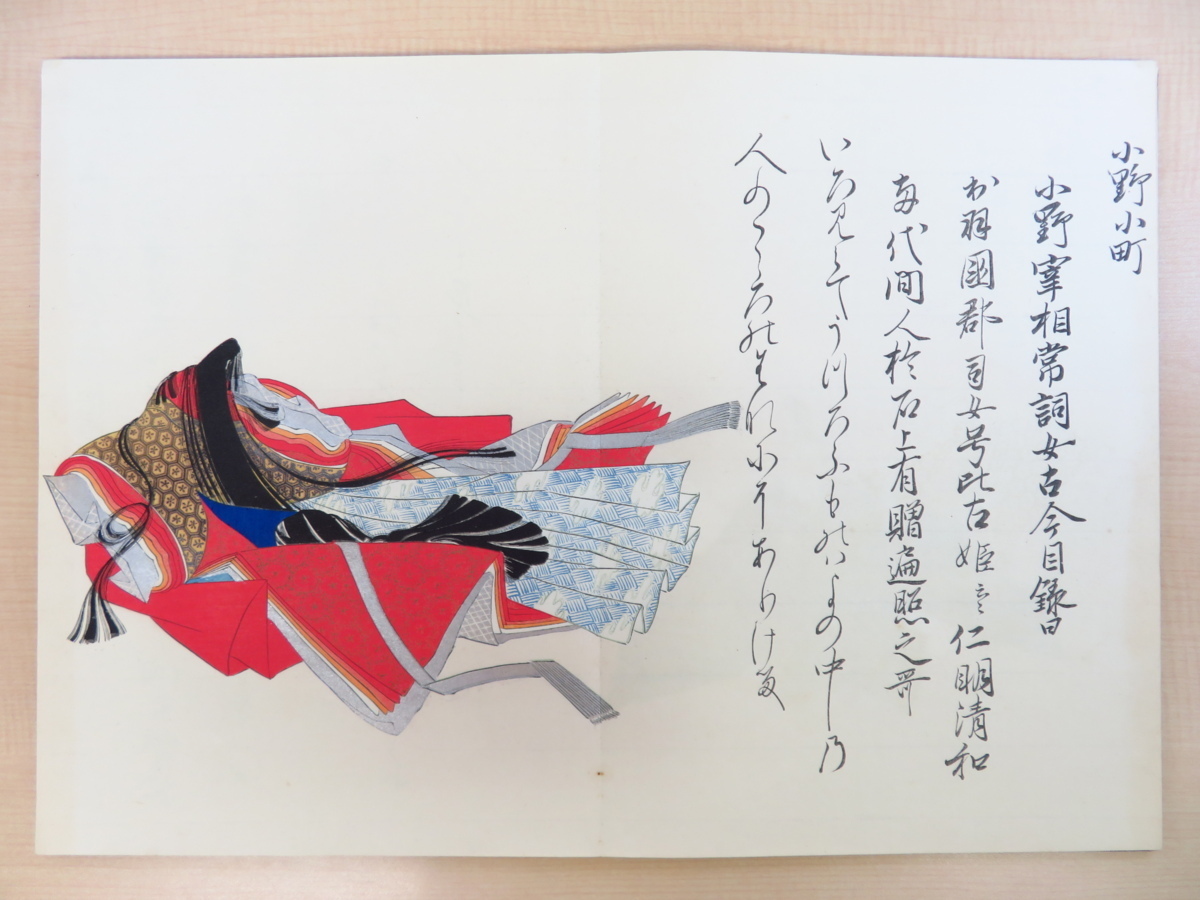 小野小町
小野宰相常詞女古今目録曰
出羽國郡司女号比古姫云々仁明清和
両代間人於石上有贈遍照之哥
いろみえてうつろふものはよの中の
人のこゝろのはなにそありける